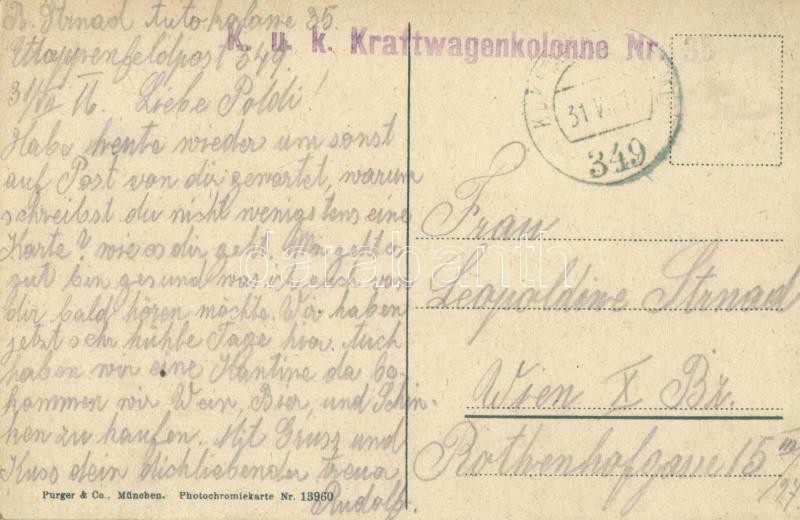 R. Strnad Autokolonne 35.
Etappenfeldpost 349
31/VII 16. Liebe Poldi!
Habe heute wieder um sonst
auf Post von dir gewartet, warum
schreibst du nicht wenigstens eine
Karte? wie es dir geht. Mir geht es
gut bin gesund was ich auch von
dir bald hören möchte. Wir haben
jetzt sehr kühle Tage hier. Auch
haben wir eine Kantine da be-
kommen wir Wein, Bier, und Schin-
ken zu kaufen. Mit Gruss und
Kuss dein dichliebender treuer
Rudolf.
K. u. k. Kraftwagenkolonne Nr. 35
31 VII
349
Frau
Leopoldine Strnad
Wien X Bz.
Rothenhofgasse 15 III/27
Purger & Co., München. Photochromiekarte Nr. 13960
darabanth